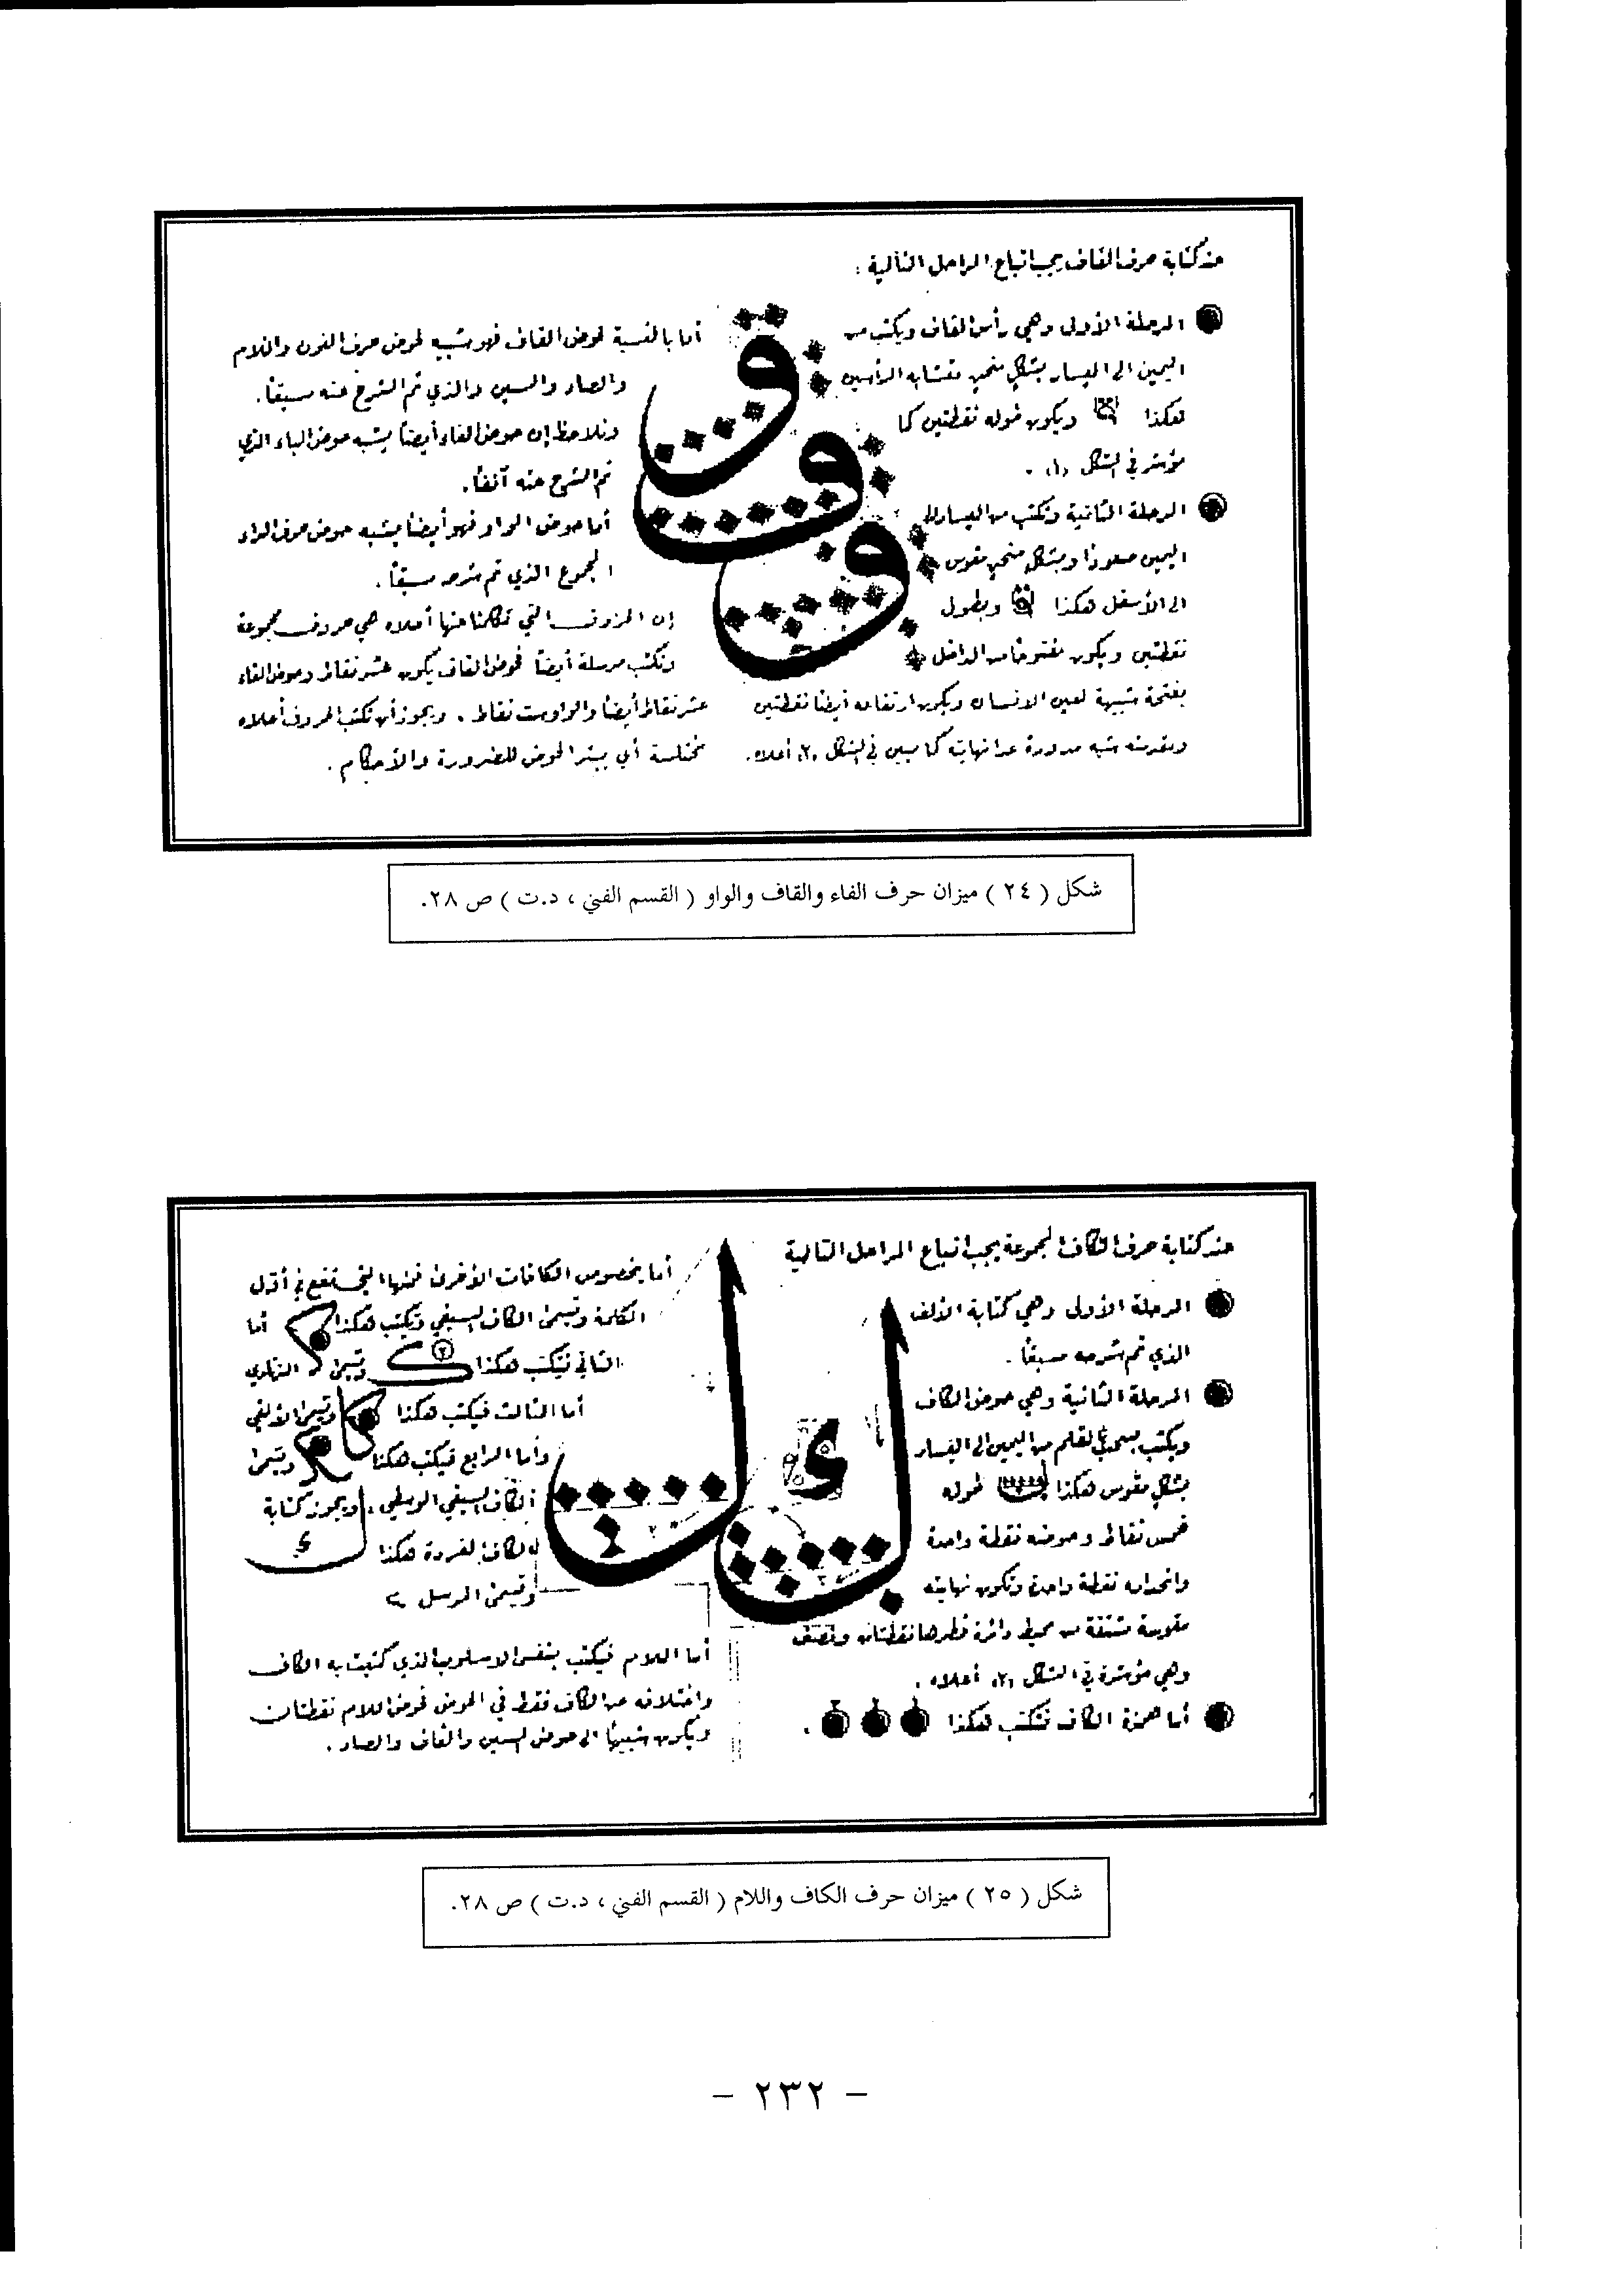 عند كتابة حرف القاف يجب اتباع المراحل التالية :
المرحلة الأولى وهي رأس القاف ويكتب من
اليمين الى اليسار بشكل منحني متشابه الرأسين
هكذا ويكون طوله نقطتين كما
مؤشر في الشكل (١) .
المرحلة الثانية وتكتب من اليسار الى
اليمين صعودًا وبشكل منحني مقوس
الى الأسفل هكذا وبطول
نقطتين ويكون مفتوحًا من الداخل
بفتحة شبيهة لعين الانسان ويكون ارتفاعه أيضًا نقطتين
ومقدمته شبه مدورة عدا نهايته كما مبين في الشكل (٢) أعلاه .
أما بالنسبة لحوض القاف فهو شبيه لحوض حرف النون واللام
والصاد والسين والذي تم الشرح عنه مسبقًا .
ونلاحظ إن حوض الفاء أيضًا يشبه حوض الباء الذي
تم الشرح عنه آنفًا .
أما حوض الواو فهو أيضًا يشبه حوض حرف الراء
المجموع الذي تم شرحه مسبقًا .
إن الحروف التي تكلمنا عنها أعلاه هي حروف مجموعة
وتكتب مرسلة أيضًا فحوض القاف يكون عشر نقاط وحوض الفاء
عشر نقاط أيضًا والواو ست نقاط . ويجوز أن تكتب الحروف أعلاه
مختلسة أي يبتر الحوض للضرورة والأحكام .
شكل ( ٢٤ ) ميزان حرف الفاء والقاف والواو ( القسم الفني ، د.ت ) ص ٢٨.
عند كتابة حرف الكاف المجموعة يجب اتباع المراحل التالية
المرحلة الأولى وهي كتابة الألف
الذي تم شرحه مسبقًا .
المرحلة الثانية وهي حوض الكاف
ويكتب بسحب القلم من اليمين الى اليسار
بشكل مقوس هكذا طوله
خمس نقاط وحوضه نقطة واحدة
وانحداره نقطة واحدة وتكون نهايته
مقوسة مشتقة من محيط دائرة قطرها نقطتان ونصف
وهي مؤشرة في الشكل (٢) أعلاه .
أما همزة الكاف فتكتب هكذا .
أما بخصوص الكافات الأخرى فمنها التي تقع في أول
الكلمة وتسمى الكاف السيفي وتكتب هكذا أما
الثاني فتكتب هكذا وتسمى
أما الثالث فيكتب هكذا وتسمى الألفي
وأما الرابع فيكتب هكذا وتسمى
الكاف السيفي الوسطي . ويجوز كتابة
الكاف المفردة هكذا
وتسمى المرسل
أما اللام فيكتب بنفس الاسلوب الذي كتبت به الكاف
واختلافه عن الكاف فقط في الحوض فحوض اللام نقطتان
ويكون شبيهًا الى حوض السين والقاف والصاد .
شكل ( ٢٥ ) ميزان حرف الكاف واللام ( القسم الفني ، د.ت ) ص ٢٨.
- ٢٣٢ -